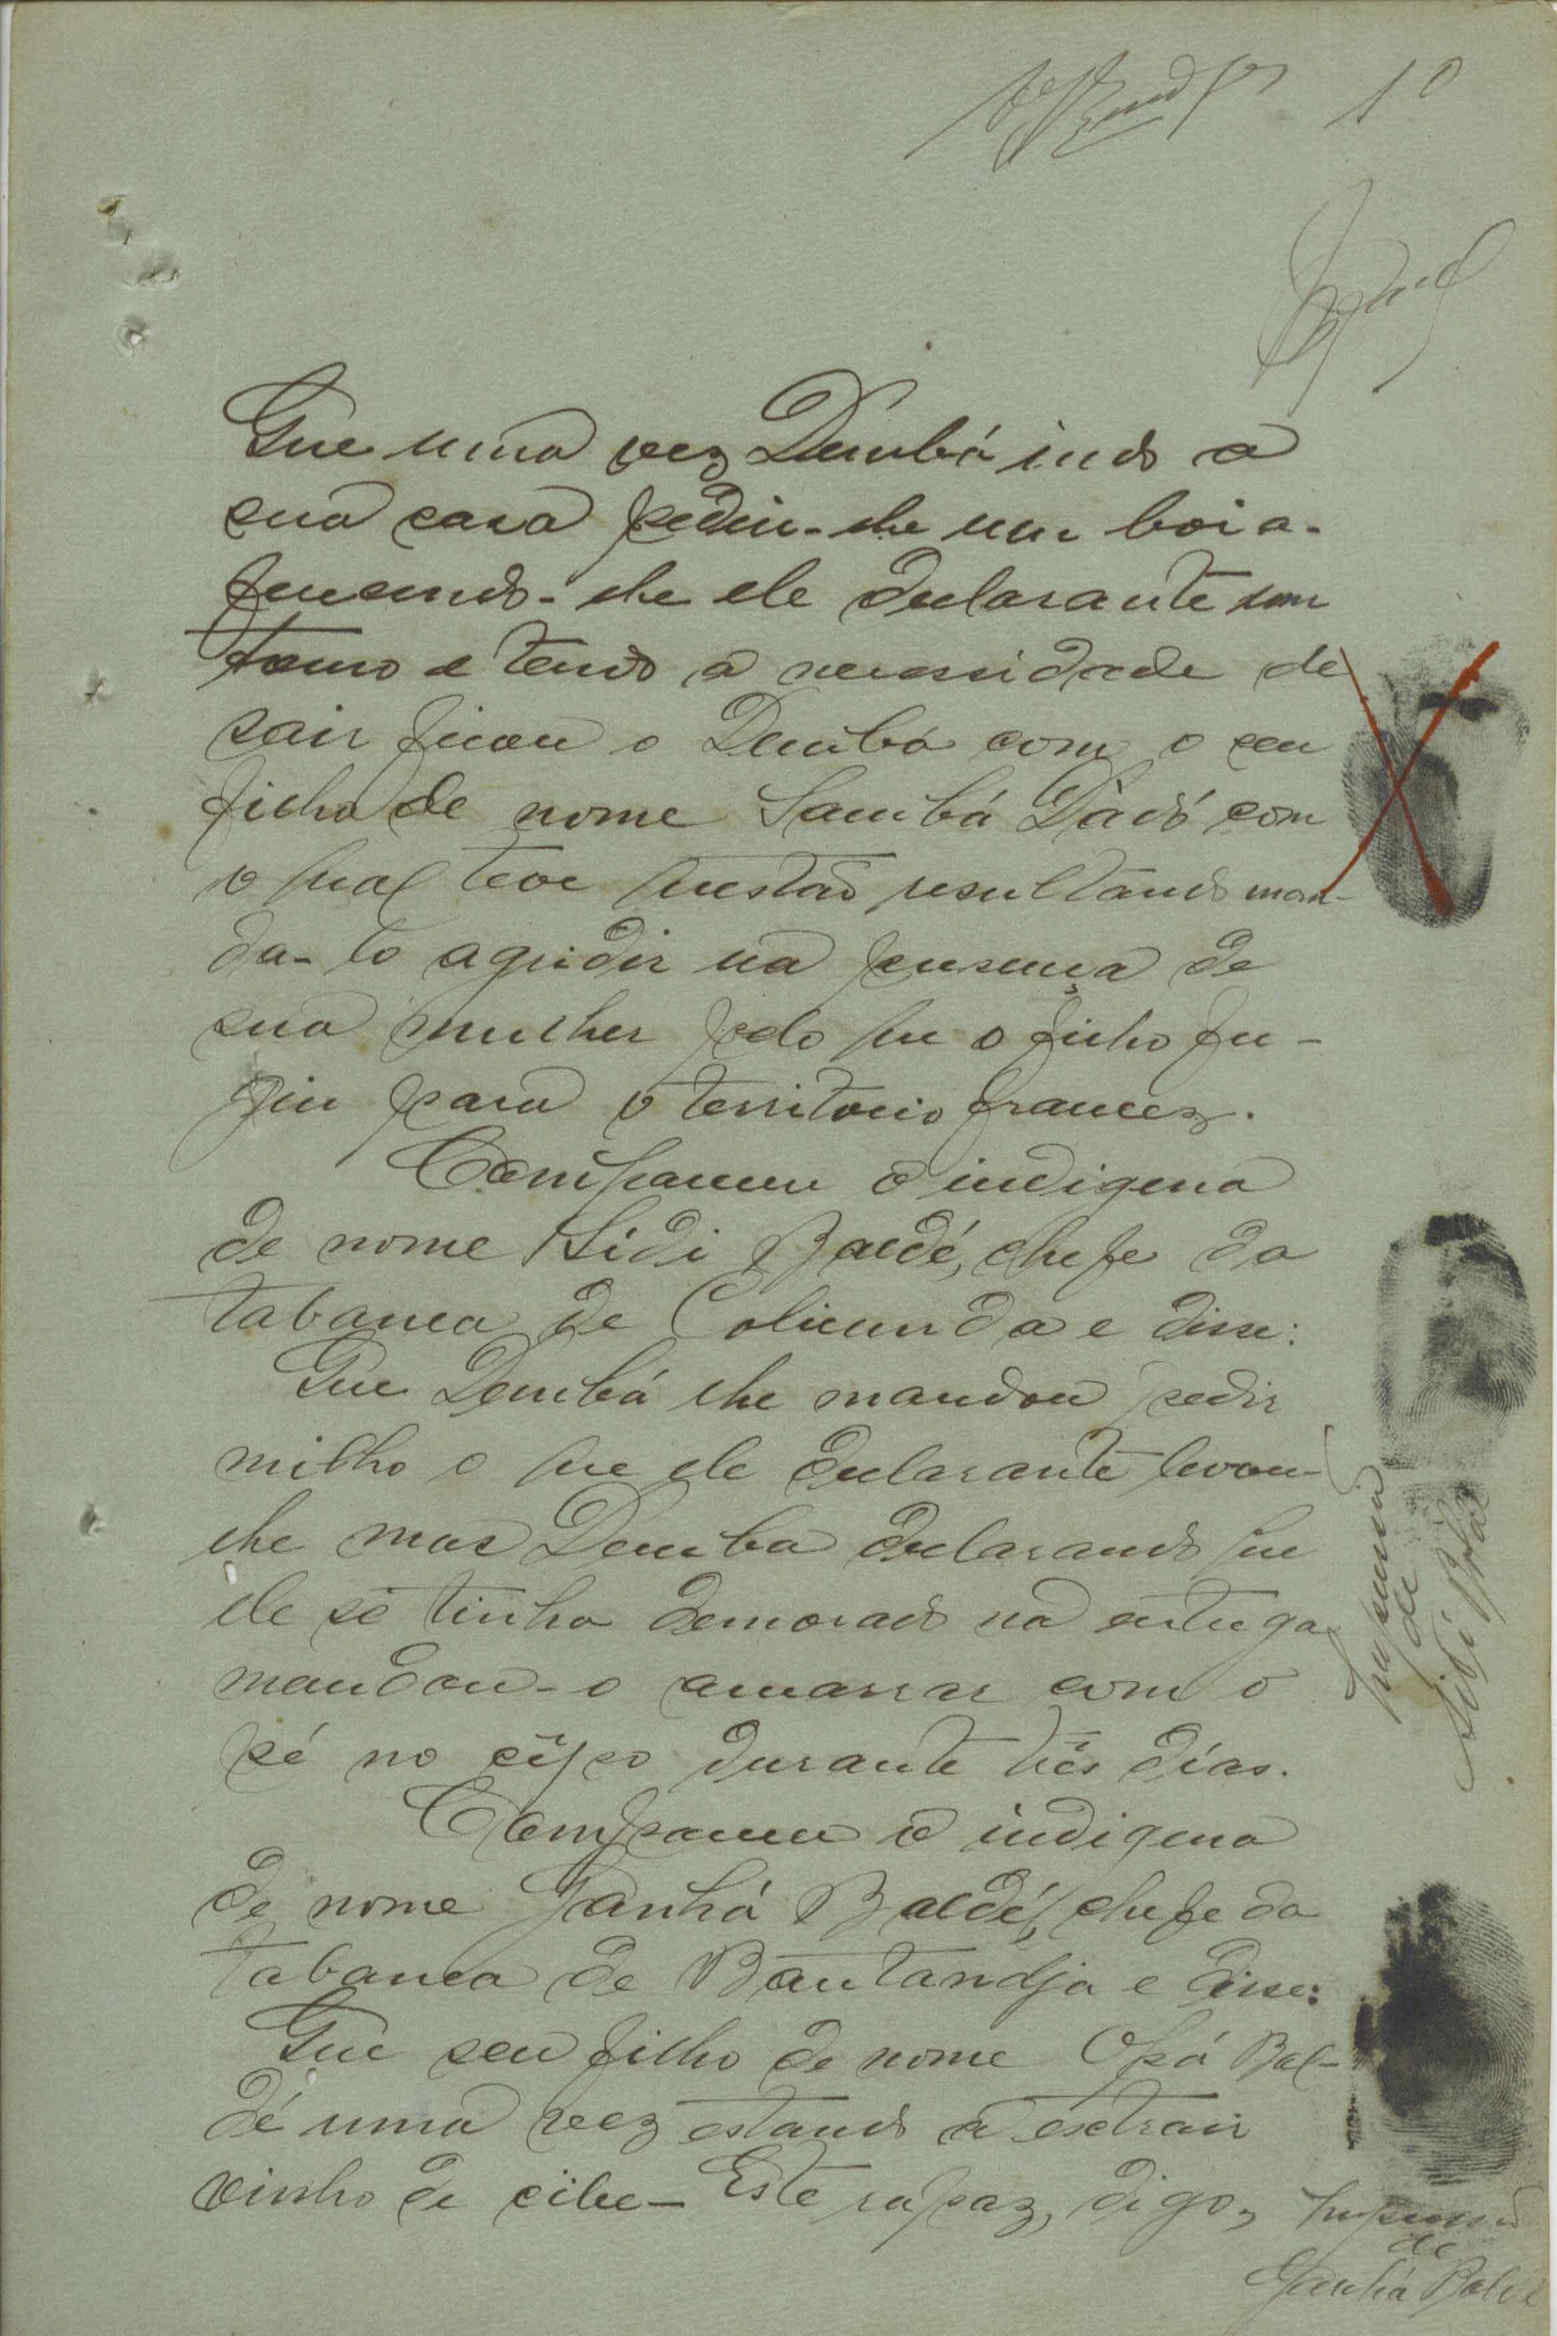 10
Que uma vez Dembá indo a
sua casa pediu-lhe um boi a-
fercendo-lhe ele declarante um
touro e tendo a necessidade de
sair ficou o Dembá com o seu
filho de nome Sambá Dadó com
o qual teve questão resultando man-
da-lo agridir na presença de
sua mulher pelo que o filho fu-
giu para o territorio francez.
Compareceu o indigena
de nome Sidi Baldé, chefe da
tabanca de Colicunda e disse:
Que Dembá lhe mandou pedir
milho o que ele declarante levou-
lhe mas Demba declarando que
ele se tinha demorado na entrega
mandou-o amarrar com o
pé no cêpo durante três dias.
Compareceu o indigena
de nome Ganhá Baldé, chefe da
tabanca de Bantandja e disse:
Que seu filho de nome Opá Bal-
dé uma vez estando a extrair
vinho de cibe- Este rapaz, digo,
Impressão
de
Sidi Baldé
Impressão
de
Ganhá Baldé